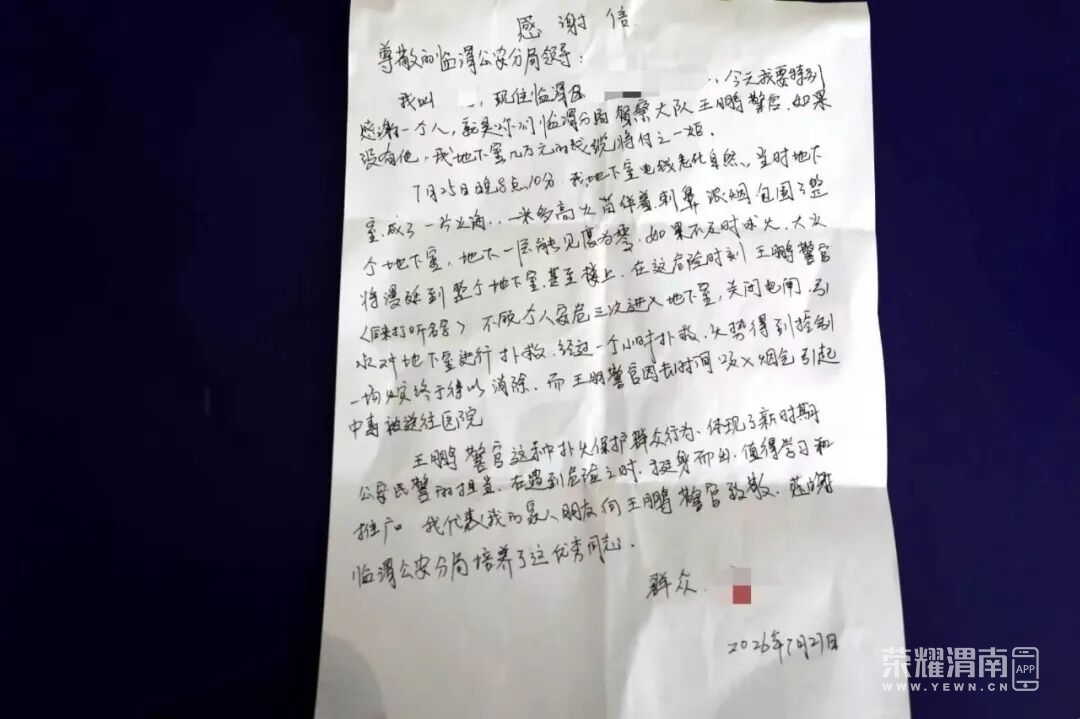 感谢信
尊敬的临渭公安分局领导：
我叫 ，现住临渭区 ，今天我要特别
感谢一个人，就是你们临渭分局督察大队王鹏警官，如果
没有他，我地下室几万元的 将付之一炬．
7月25日晚8点10分．我地下室电线老化自然．，当时地下
室，成了一片火海．．一米多高火苗伴着刺鼻浓烟包围了整
个地下室，地下一层能见度为零．如果不及时救火．大火
将漫延到整个地下室．甚至楼上．在这危险时刻王鹏警官
〈后来打听名字〉不顾个人安危三次进入地下室，关闭电闸．引
水对地下室进行扑救．经过一个小时扑救．火势得到控制
一场火灾终于得以消除．而王鹏警官因长时间吸入烟气引起
中毒被送往医院
王鹏警官这种扑火保护群众行为、体现了新时期
公安民警的担当．在遇到危险之时．挺身而出．值得学习和
推广．我代表我的家人朋友向王鹏警官致敬．感谢
临渭公安分局培养了这优秀同志．
群众．
2026年7月27日
荣耀渭南 APP
WWW.YEWN.CN